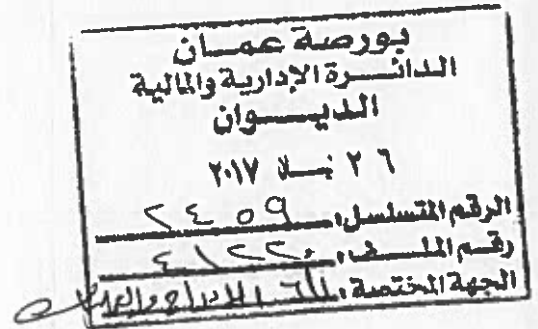 بورصة عمان
الدائرة الإدارية والمالية
الديوان
٢٦ نيسان ٢٠١٧
الرقم المتسلسل: ٢٤٥٩
رقم الملف: ٤١٢٢٠
الجهة المختصة: الادراج والعمليات